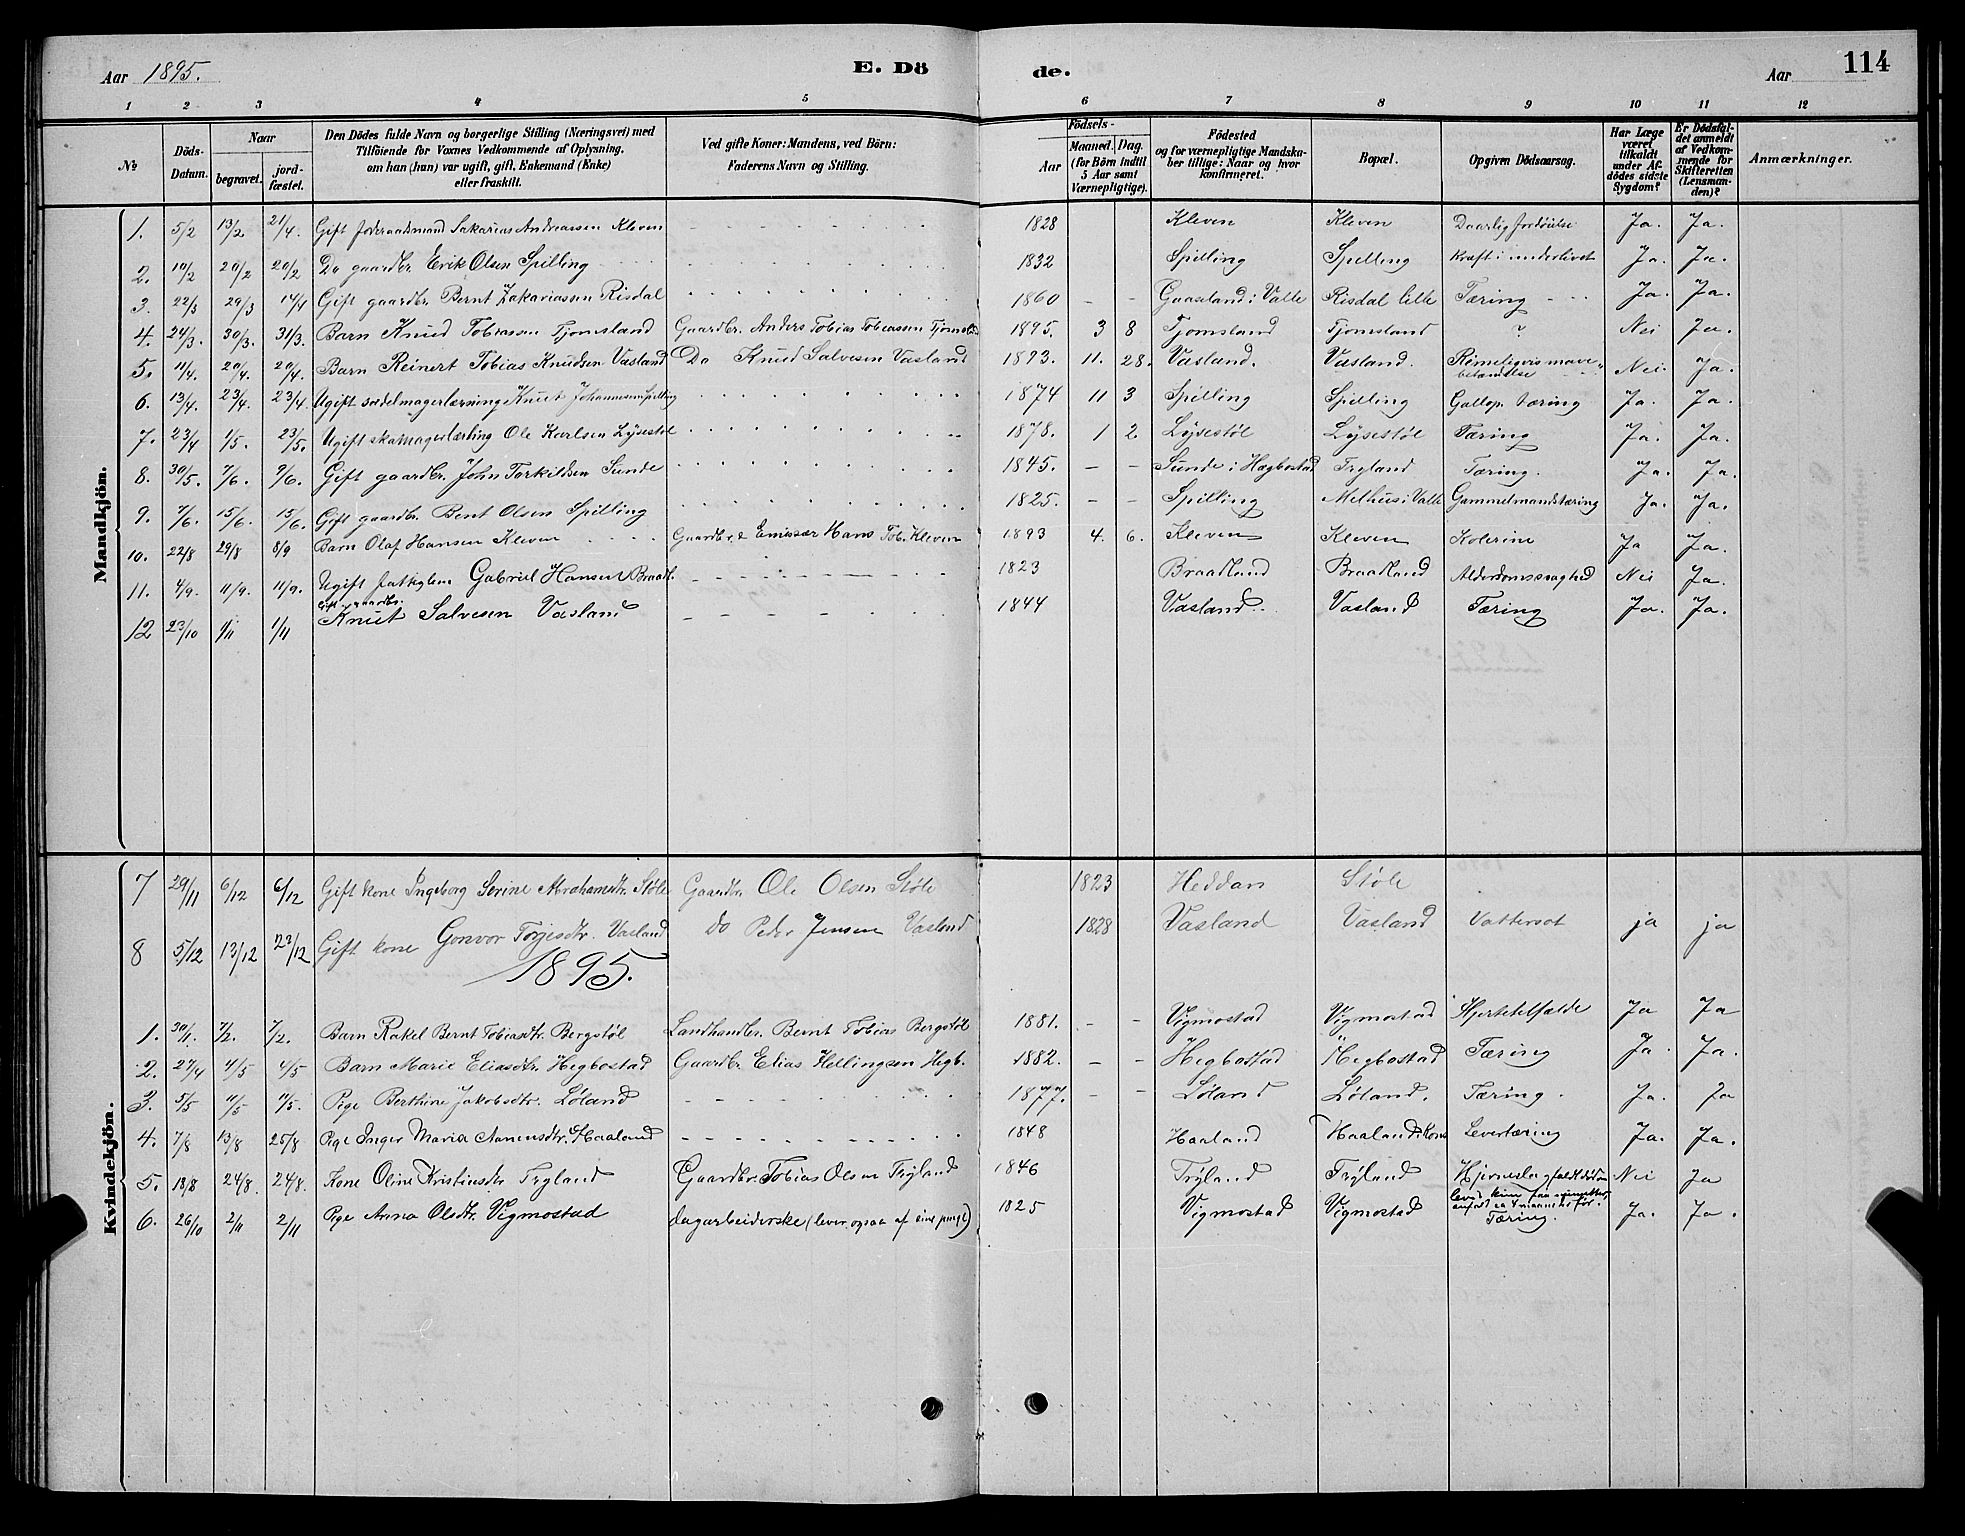 Aar 1895. E. Dö de. Aar 114
1 2 3 4 5 6 7 8 9 10 11 12
No Döds-Datum. Naar begravet. jordfæstet. Den Dödes fulde Navn og borgerlige Stilling (Næringsvei) med Tilföiende for Voxnes Vedkommende af Oplysning, om han (hun) var ugift, gift, Enkemand (Enke) eller fraskilt. Ved gifte Koner: Mandens, ved Börn: Faderens Navn og Stilling. Födsels- Aar Maaned. Dag. (for Börn indtil 5 Aar samt Værnepligtige). Födested og for værnepligtige Mandskaber tillige: Naar og hvor konfirmeret. Bopæl. Opgiven Dödsaarsag. Har Læge været tilkaldt under Afdödes sidste Sygdom? Er Dödsfaldet anmeldt af Vedkommende for Skifteretten (Lensmanden)? Anmærkninger.
Mandkjön.
1. 5/2 13/2 21/4. Gift føderaadsmand Sakarias Andreassen Kleven 1828 Kleven Kleven Daarlig fordøielse Ja. Ja.
2. 10/2 20/2 20/2 Do gaardbr. Erik Olsen Spilling 1832 Spilling Spilling Kræft i underlivet Ja. Ja.
3. 22/3 29/3 14/4 Gift gaardbr. Bernt Zakariassen Risdal 1860 - - Gaasland i Valle Risdal lille Tæring Ja. Ja.
4. 24/3. 30/3. 31/3. Barn Knud Tobiassen Tjomsland Gaardbr. Anders Tobias Tobiassen 1895. 3 8 Tjomsland Tjomsland ? Nei Ja.
5. 11/4. 20/4. 20/4. Barn Reinert Tobias Knudsen Vasland Do Knud Salvesen Vasland 1893. 11. 28. Vasland. Vasland. Rimeligvis mavebetændelse Nei. Ja.
6. 13/4. 23/4. 23/4 Ugift sadelmagerlærning Knut Johannesen Spilling 1874 11 3 Spilling Spilling Gallop. tæring Ja. Ja.
7. 23/4 1/5. 23/5. Ugift skomagerlærling Ole Karlsen Lysestøl 1878. 1 2 Lysestøl Lysestøl Tæring Ja. Ja.
8. 30/5. 7/6. 7/6. Gift gaardbr. John Torkildsen Sunde 1845. - - Sunde i Hægbostad Tryland Tæring. Ja. Ja.
9. 7/6. 15/6. 15/6. Gift gaardbr. Bent Olsen Spilling 1825. - - Spilling Melhus i Valle Gammelmandstæring Ja. Ja.
10. 22/8 29/8 8/9 Barn Olaf Hansen Kleven Gaardbr. & Emissær Hans Tob. Kleven 1893 4. 6. Kleven Kleven Kolerine Ja Ja.
11. 4/9. 11/9. 11/9. Ugift fattiglem Gabriel Hansen Braadl. 1823 Braadland Braadland Alderdomssvaghed Nei Ja.
12 23/10 1/11 1/11 Gift gaardbr. Knut Salvesen Vasland 1844 Vasland. Vasland Tæring Ja. Ja.
Kvindekjön.
7 29/11 6/12 6/12 Gift kone Ingeborg Serine Abrahamsdtr. Støle Gaardbr. Ole Olsen Støle 1823 Heddan Støle
8 5/12 13/12 23/12 Gift kone Gonvor Torjesdtr. Vasland do Peder Jensen Vasland 1828 Vasland Vasland Vattersot ja ja
1895.
1. 30/1. 7/2. 7/2. Barn Rakel Bernt Tobiasdtr. Bergstøl Landhandlr. Bernt Tobias Bergstøl 1881. - - Vigmostad Vigmostad Hjertetilfælde Ja Ja
2. 27/4 4/5 4/5 Barn Marie Eliasdtr. Hegbostad Gaardbr. Elias Hellingsen Hegb. 1882. - - Hegbostad Hegbostad Tæring Ja Ja.
3. 5/5 11/5 11/5. Pige Berthine Jakobsdtr. Løland 1877. - - Løland Løland. Tæring. Ja. Ja
4. 7/8 13/8 25/8 Pige Inger Maria Aanensdtr. Haaland 1848 Haaland Haaland Levertæring Ja. Ja.
5. 18/8 24/8. 24/8. Kone Oline Kristiansdtr Tryland Gaardbr. Tobias Olsen Tryland 1846 Tryland Tryland Nei Ja
6. 26/10 2/11 2/11 Pige Anna Olsdtr. Vigmostad dagarbeiderske (lever ogsaa af sine penge) 1825 Vigmostad Vigmostad Tæring. Ja. Ja.